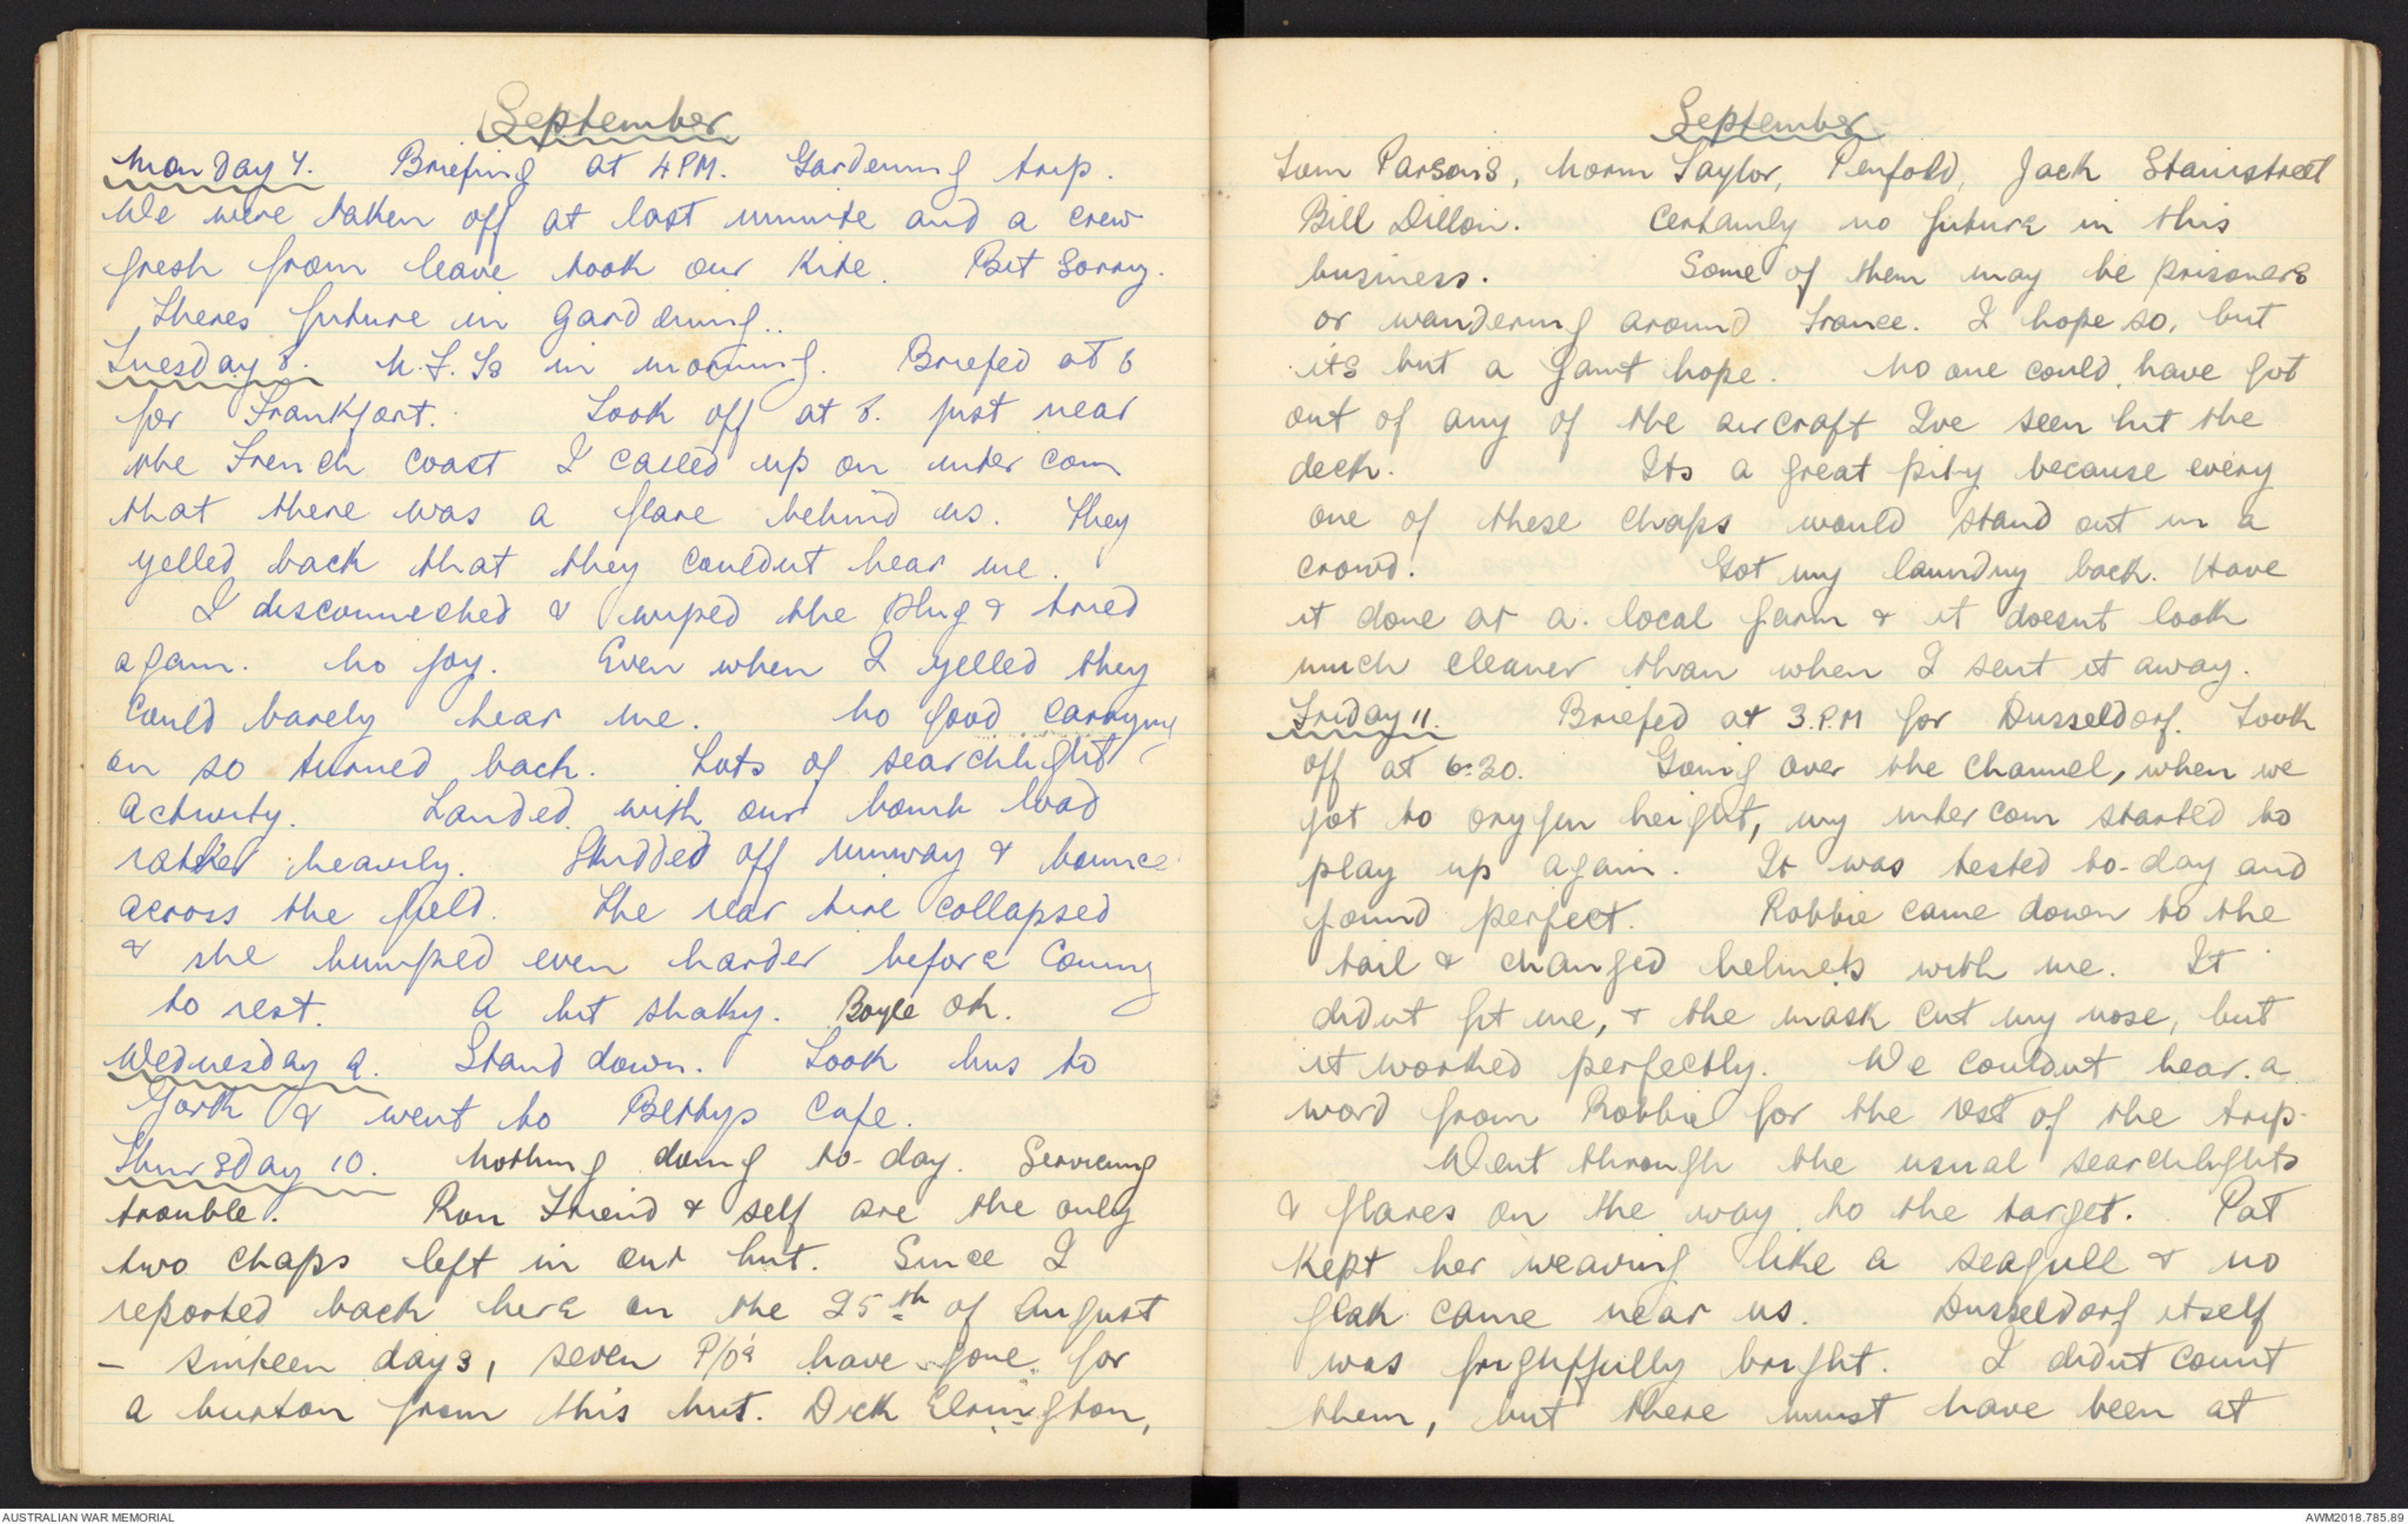 September
Monday 7. Briefing at 4 PM. Gardening trip.
We were taken off at last minute and a crew
fresh from leave took our kite. Bit sorry.
Theres future in gardening..
Tuesday 8. N.F.Ts in morning. Briefed at 6
for Frankfort. Took off at 8. Just near
the French coast I called up on inter com
that there was a flare behind us. They
yelled back that they couldnt hear me.
I disconnected & wiped the plug & tried
again. No joy. Even when I yelled they
could barely hear me. No good carrying
on so turned back. Lots of searchlight
activity. Landed with our bomb load
rather heavily. Skidded off runway & bounce
across the field. The rear tire collapsed
& she bumped even harder before coming
to rest. A bit shaky. Boyle ok.
Wednesday 9. Stand down. Took bus to
York & went to Bettys Cafe.
Thursday 10. Nothing doing to-day. Servicing
trouble. Ron Friend & self are the only
two chaps left in our hut. Since I
reported back here on the 25th of August
- sixteen days, seven P/Os have gone for
a burton from this hut. Dick Elrington,
September
Tom Parsons, Norm Taylor, Penfold, Jack Stainstreet
Bill Dillon. Certainly no future in this
business. Some of them may be prisoners
or wandering around France. I hope so, but
its but a faint hope. No one could have got
out of any of the aircraft Ive seen hit the
deck. Its a great pity because every
one of these chaps would stand out in a
crowd. Got my laundry back. Have
it done at a local farm & it doesnt look
much cleaner than when I sent it away.
Friday 11. Briefed at 3.P.M for Dusseldorf. Took
off at 6:30. Going over the channel, when we
got to oxygen height, my inter com started to
play up again. It was tested to-day and
found perfect. Robbie came down to the
tail & changed helmets with me. It
didnt fit me, & the mask cut my nose, but
it worked perfectly. We couldnt hear a
word from Robbie for the rest of the trip.
Went through the usual searchlights
& flares on the way to the target. Pat
kept her weaving like a seagull & no
flak came near us. Dusseldorf itself
was frightfully bright. I didnt count
them, but there must have been at
AUSTRALIAN WAR MEMORIAL
AWM2018.785.89